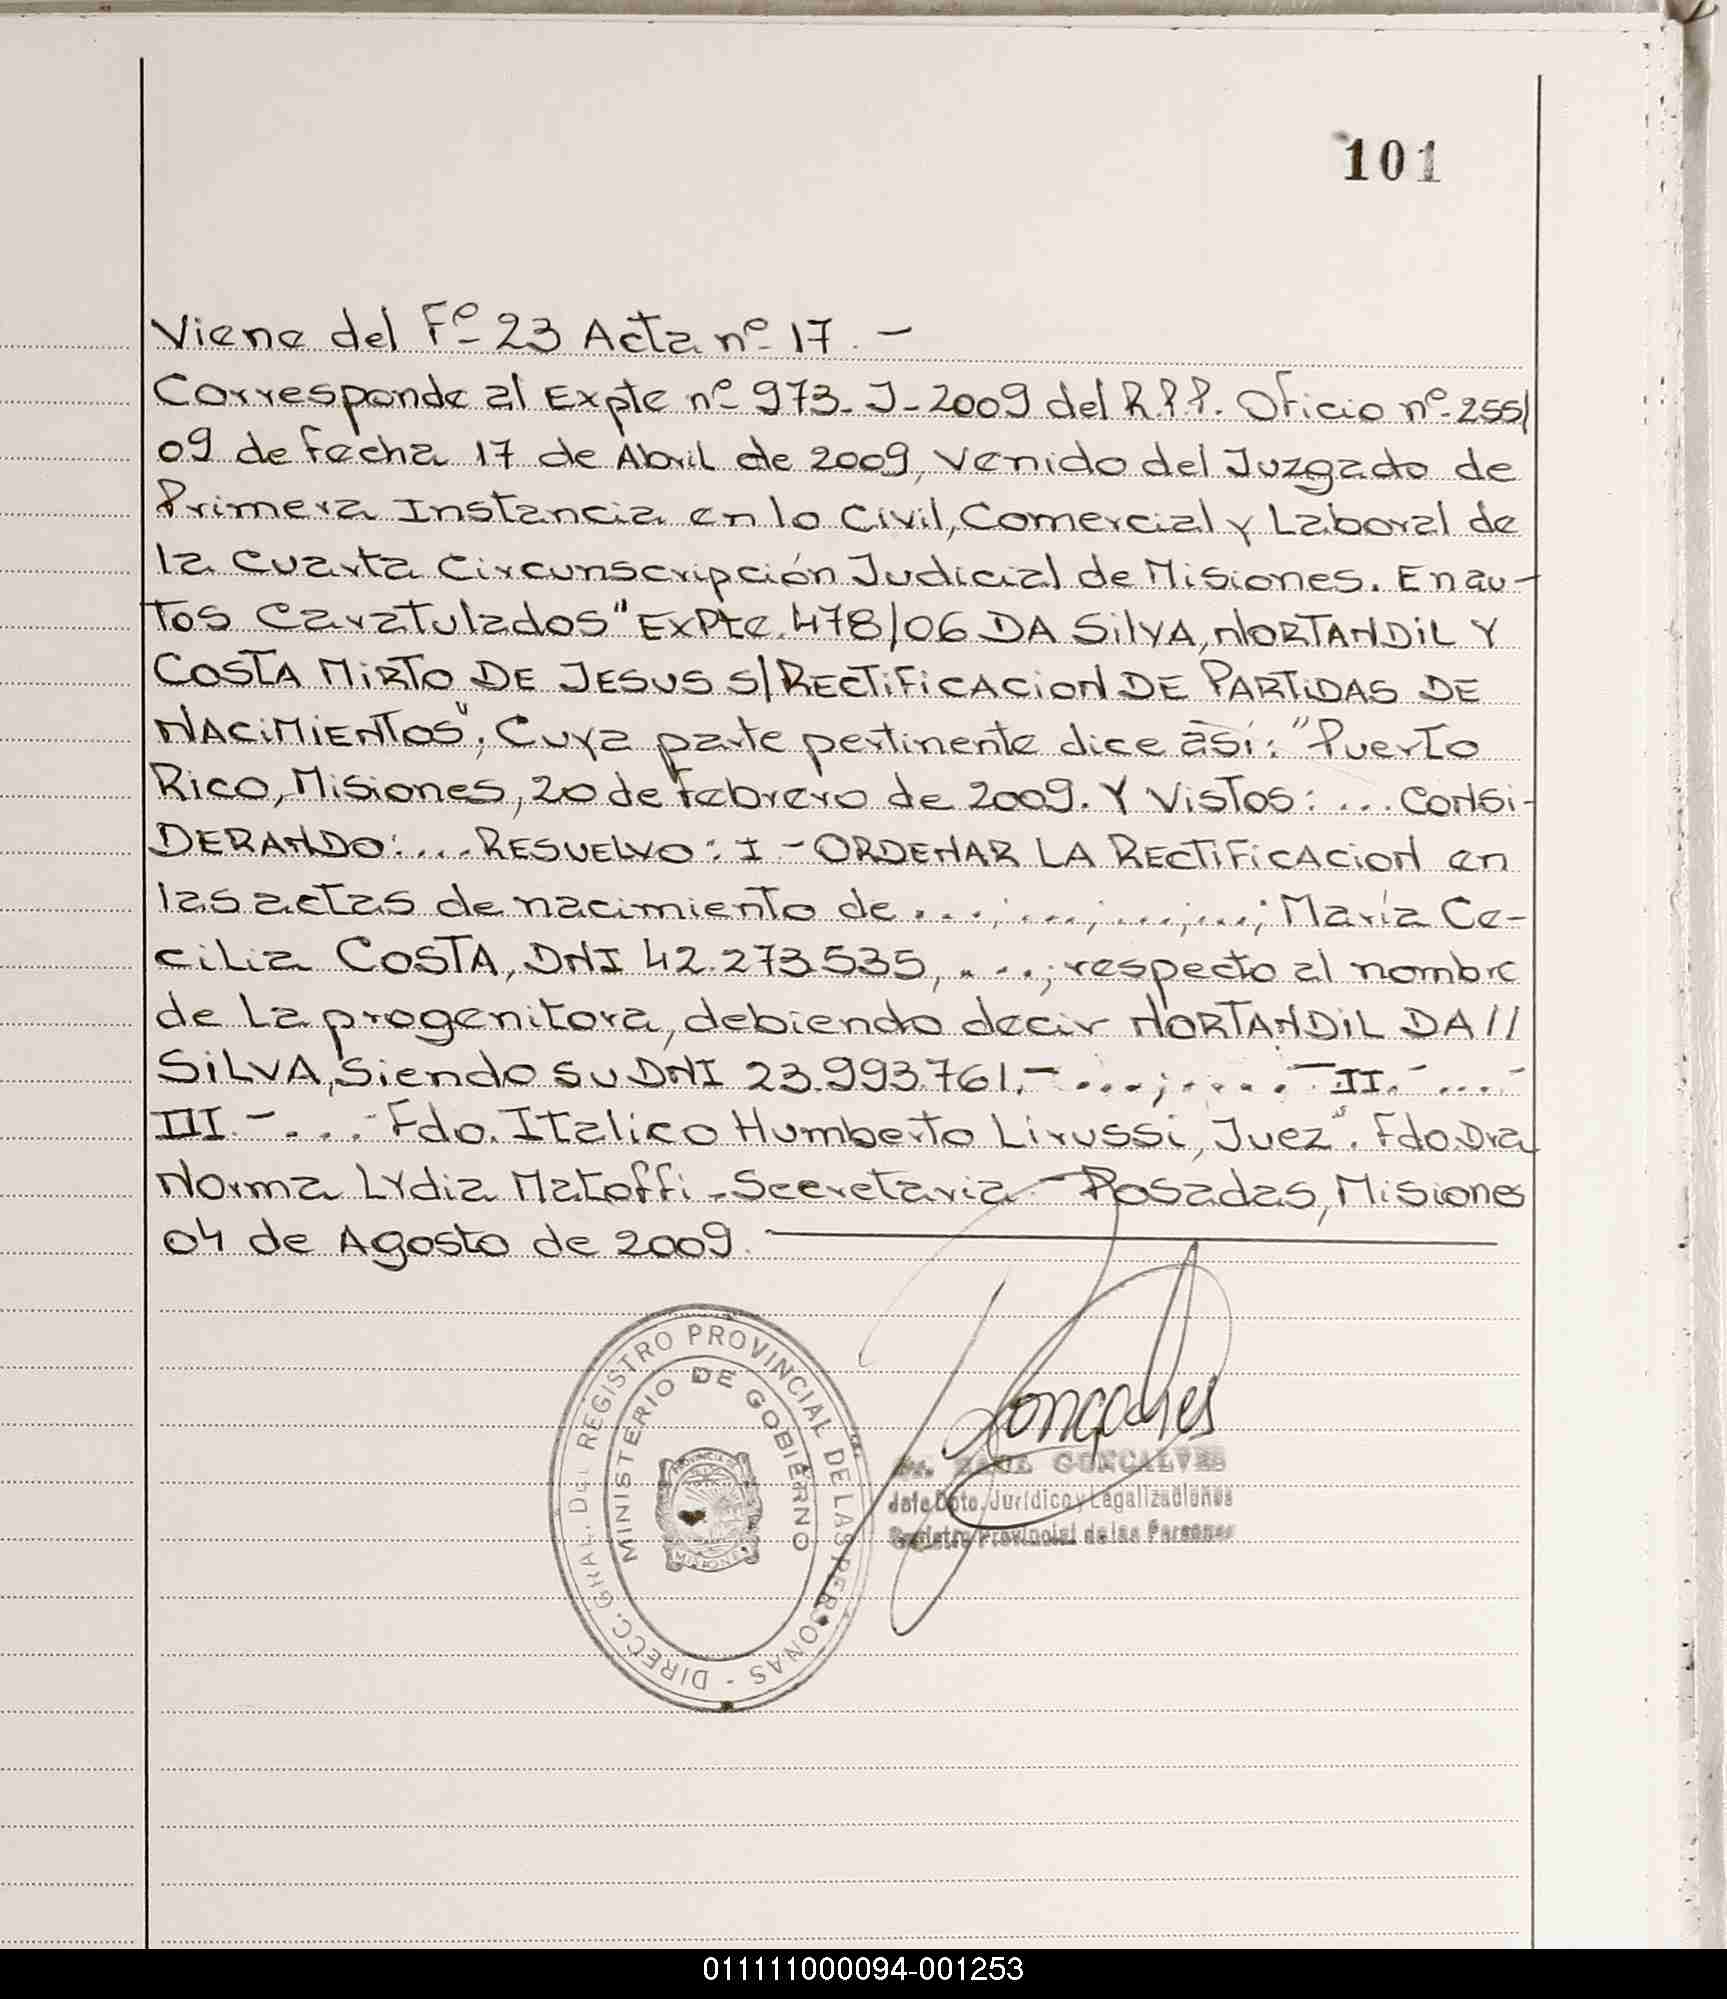 101
Viene del Fº 23 Acta nº 17. -
Corresponde al Expte nº 973-J-2009 del R.P.P. Oficio nº 255/
09 de fecha 17 de Abril de 2009, venido del Juzgado de
Primera Instancia en lo Civil, Comercial y Laboral de
la Cuarta Circunscripción Judicial de Misiones. En au-
tos Caratulados "EXPte. 478/06 DA SilVA, NORTANDiL Y
COSTA MiRTO DE JESUS S/RECTiFiCACioN DE PARTiDAS DE
NACiMiENTOS"; Cuya parte pertinente dice así: "Puerto
Rico, Misiones, 20 de febrero de 2009. Y VisTos: ... CONSi-
DERANDO: ... RESUELVO: I - ORDENAR LA RECTiFiCACioN en
las actas de nacimiento de ...;...;...;...; María Ce-
cilia COSTA, DNI 42.273.535, ...; respecto al nombre
de la progenitora, debiendo decir NORTANDiL DA //
SiLVA, Siendo su DNI 23.993.761.- ...;.... - II.- ....-
III.- ... - Fdo. Italico Humberto Lirussi, Juez". Fdo. Dra
Norma Lydia Matoffi - Secretaria - Posadas, Misiones
04 de Agosto de 2009.
DIRECC. GRAL. DEL REGISTRO PROVINCIAL DE LAS PERSONAS -
MINISTERIO DE GOBIERNO
PROVINCIA DE
MISIONES
Gonçalves
GONCALVES
Jefe Dpto. Jurídico y Legalizaciones
Registro Provincial de las Personas
011111000094-001253